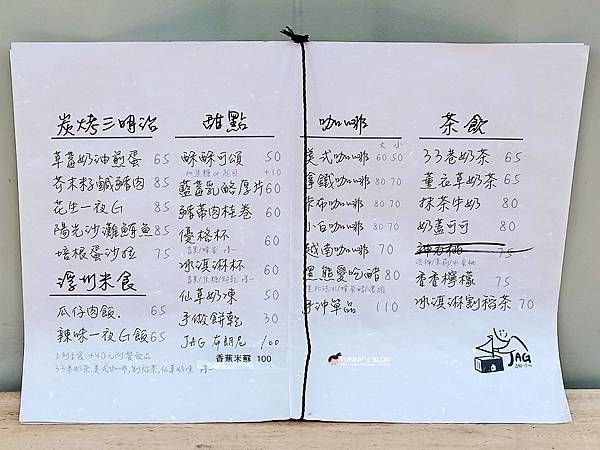 炭烤三明治
草莓奶油煎蛋 65
芥末籽鹹豬肉 85
花生一夜G 85
陽光沙灘鮪魚 85
培根蛋沙拉 75
潭州米食
瓜仔肉飯 65
辣味一夜G飯 65
33巷奶茶、美式咖啡、割稻茶、仙草奶凍 擇一
甜點
酥酥可頌 50
加焦糖 or 起司 +10
藍莓乳酪厚片 60
豬蒂肉桂卷 60
優格杯 60
冰淇淋杯 60
仙草奶凍 50
手做餅乾 30
JAG 布朗尼 100
香蕉米蘇 100
咖啡
大 小
美式咖啡 60 50
拿鐵咖啡 80 70
卡布咖啡 80 70
小白咖啡 80 70
越南咖啡 70
黑熊愛吃蝦 80
手沖單品 110
YUNNY's BLOG
茶飲
33巷奶茶 65
薰衣草奶茶 65
抹茶牛奶 80
奶蓋可可 80
75
香香檸檬 75
冰淇淋割稻茶 70
JAG